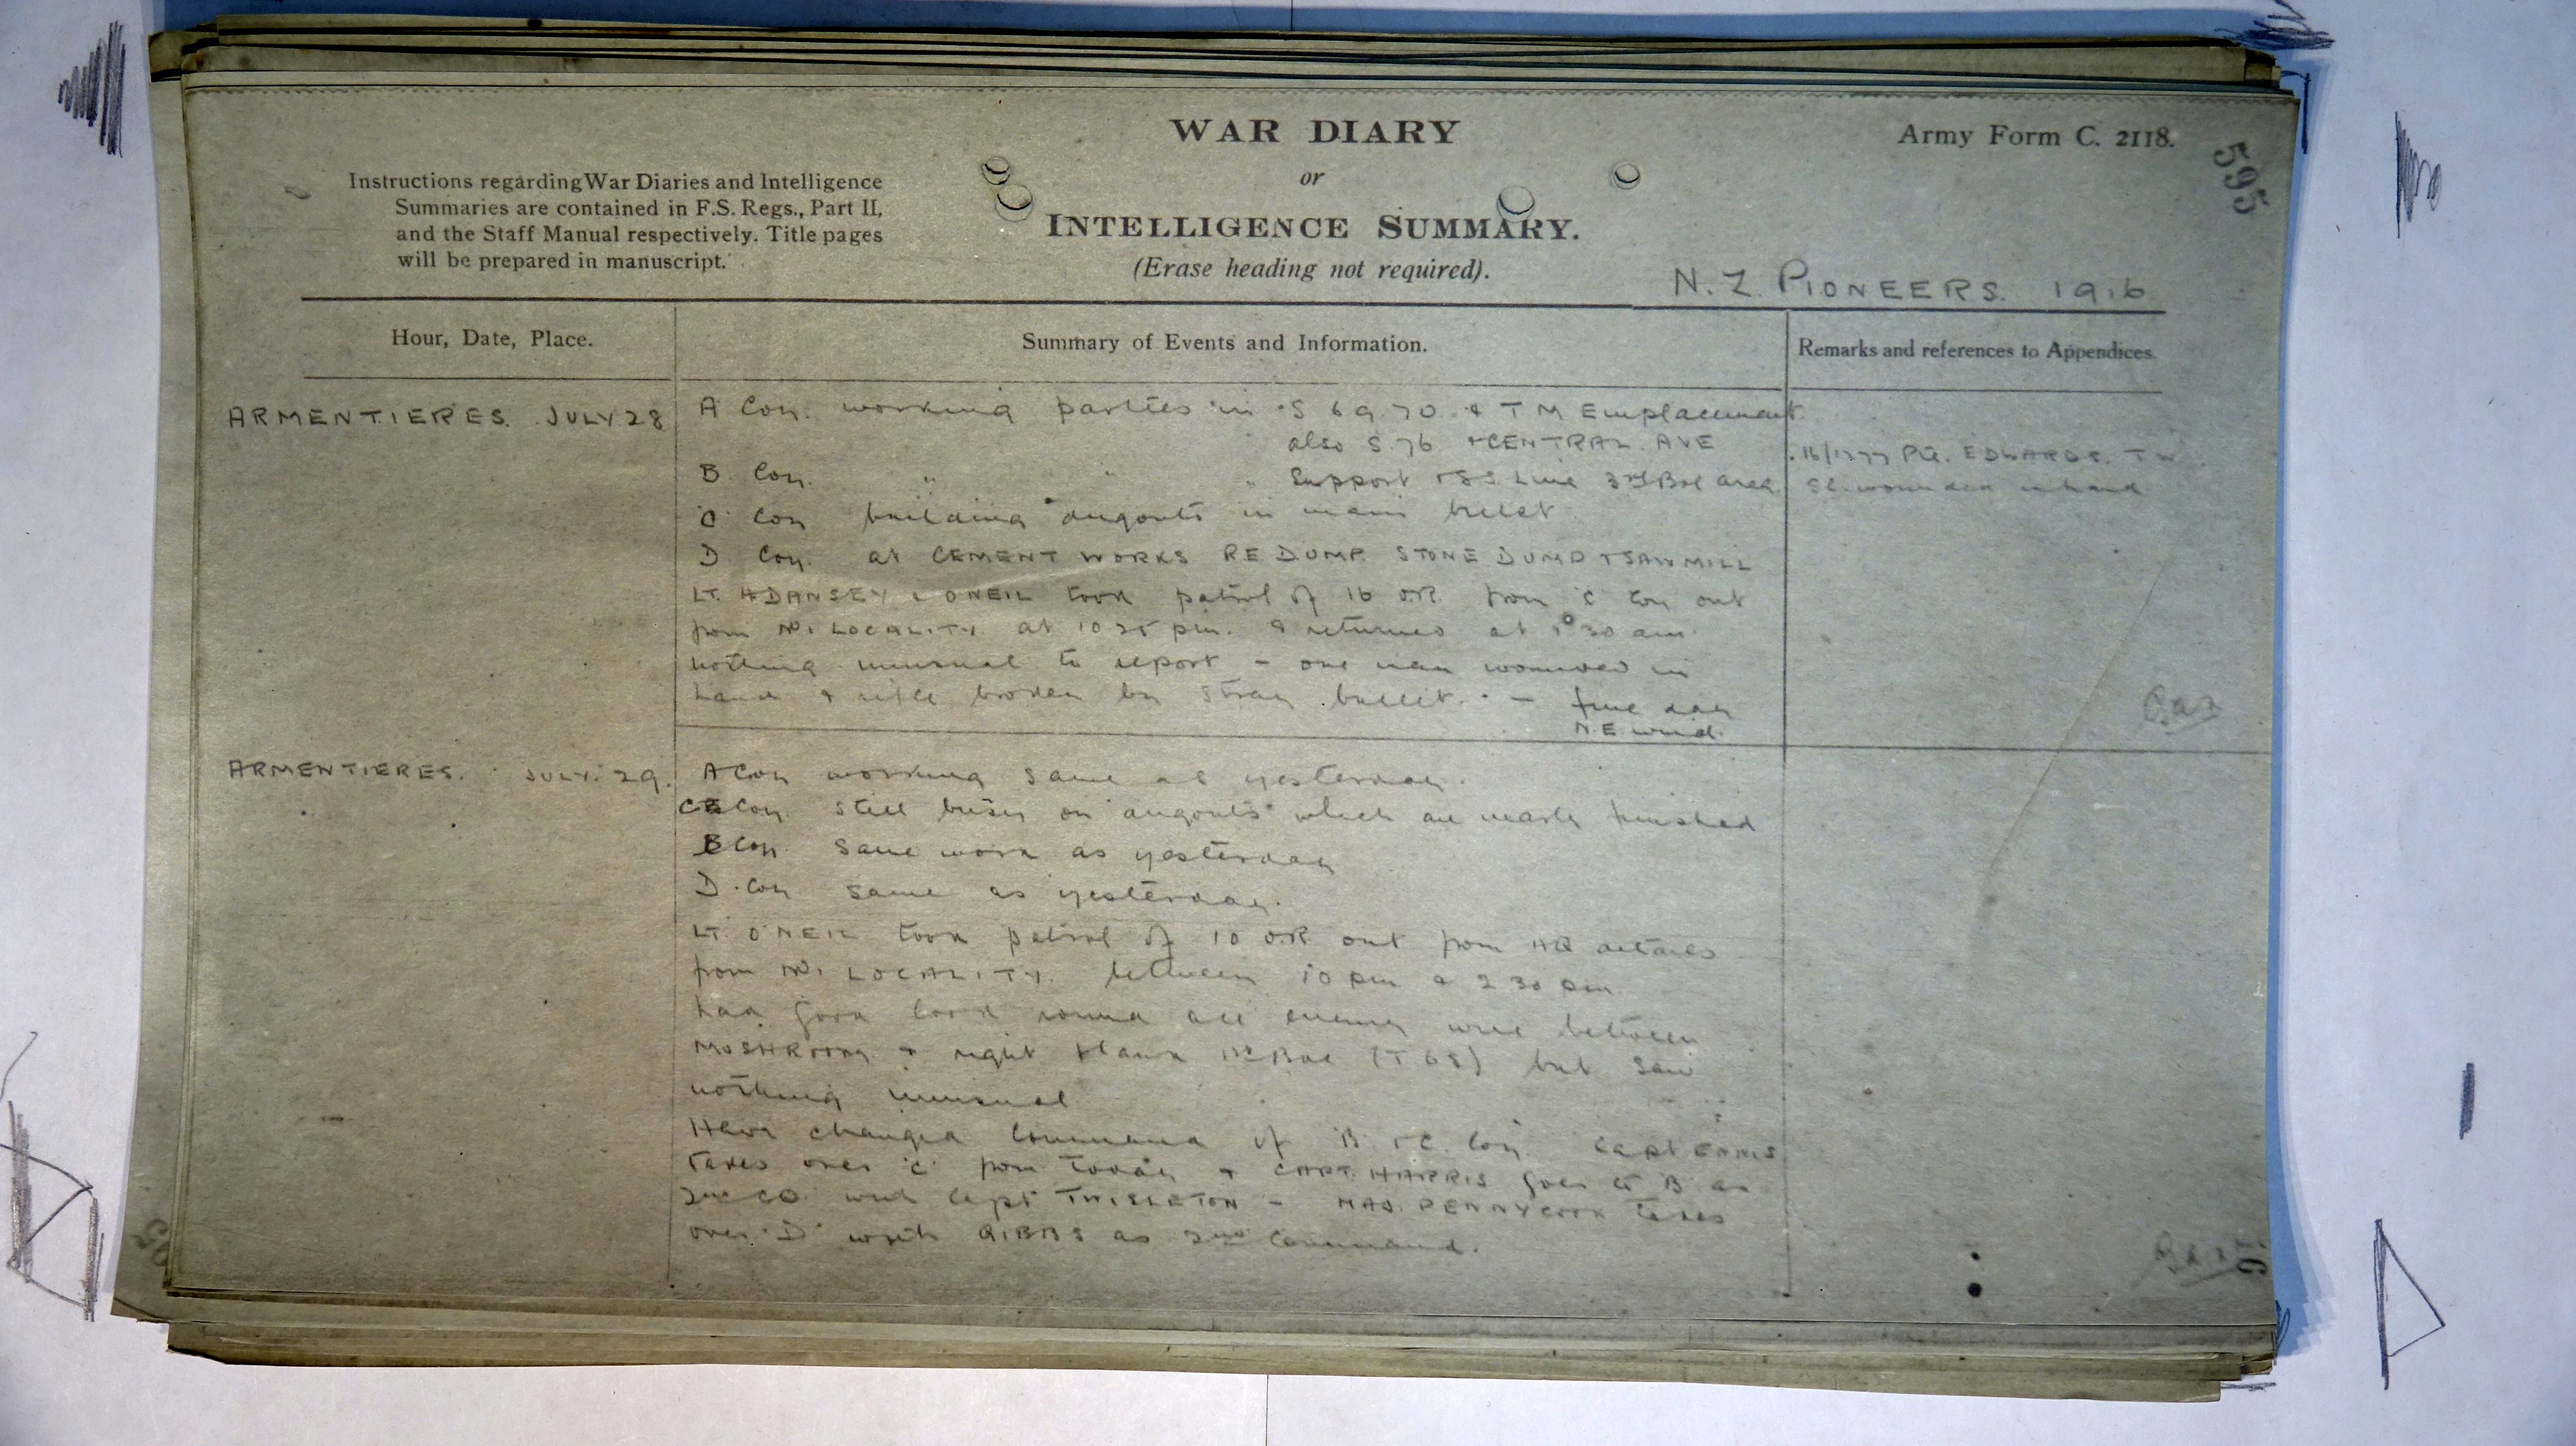 WAR DIARY
or
INTELLIGENCE SUMMARY.
(Erase heading not required).
Army Form C. 2118.
595
Instructions regarding War Diaries and Intelligence
Summaries are contained in F.S. Regs., Part II,
and the Staff Manual respectively. Title pages
will be prepared in manuscript.
N.Z. PIONEERS. 1916
Hour, Date, Place.
Summary of Events and Information.
Remarks and references to Appendices.
ARMENTIERES. JULY 28
A Coy. working parties in S 69 70 & TM Emplacement
also S 76 + CENTRAL AVE
B. Coy. " " " Support + SS. Line 3rd Bde area
16/1277 Pte. EDWARDS. T W
Sl. wounded in hand
C Coy building dugouts in main billet
D Coy. at CEMENT WORKS RE DUMP. STONE DUMP + SAWMILL
LT. H DANSEY & ONEIL took patrol of 16 O.R. from C Coy out
from No 1 LOCALITY at 10 25 pm. & returned at 1 30 am.
nothing unusual to report - one man wounded in
hand & rifle broken by stray bullet. - fine day
N.E. wind.
ARMENTIERES. JULY. 29.
A Coy working same as yesterday.
C Coy still busy on "dugouts" which are nearly finished
B Coy. same work as yesterday
D. Coy same as yesterday.
LT. O'NEIL took patrol of 10 O.R. out from HQ details
from No 1 LOCALITY. between 10 pm & 2 30 pm
had good look round all enemy wire between
MUSHROOM & right flank 1st Bde (T 68) but saw
nothing unusual
Have changed command of B + C. Coy. Capt ENNIS
takes over 'C' from today & CAPT. HARRIS goes to B as
2nd CO. with Capt TWISLETON - MAJ. PENNYCOOK takes
over "D" with GIBBS as 2nd Command.